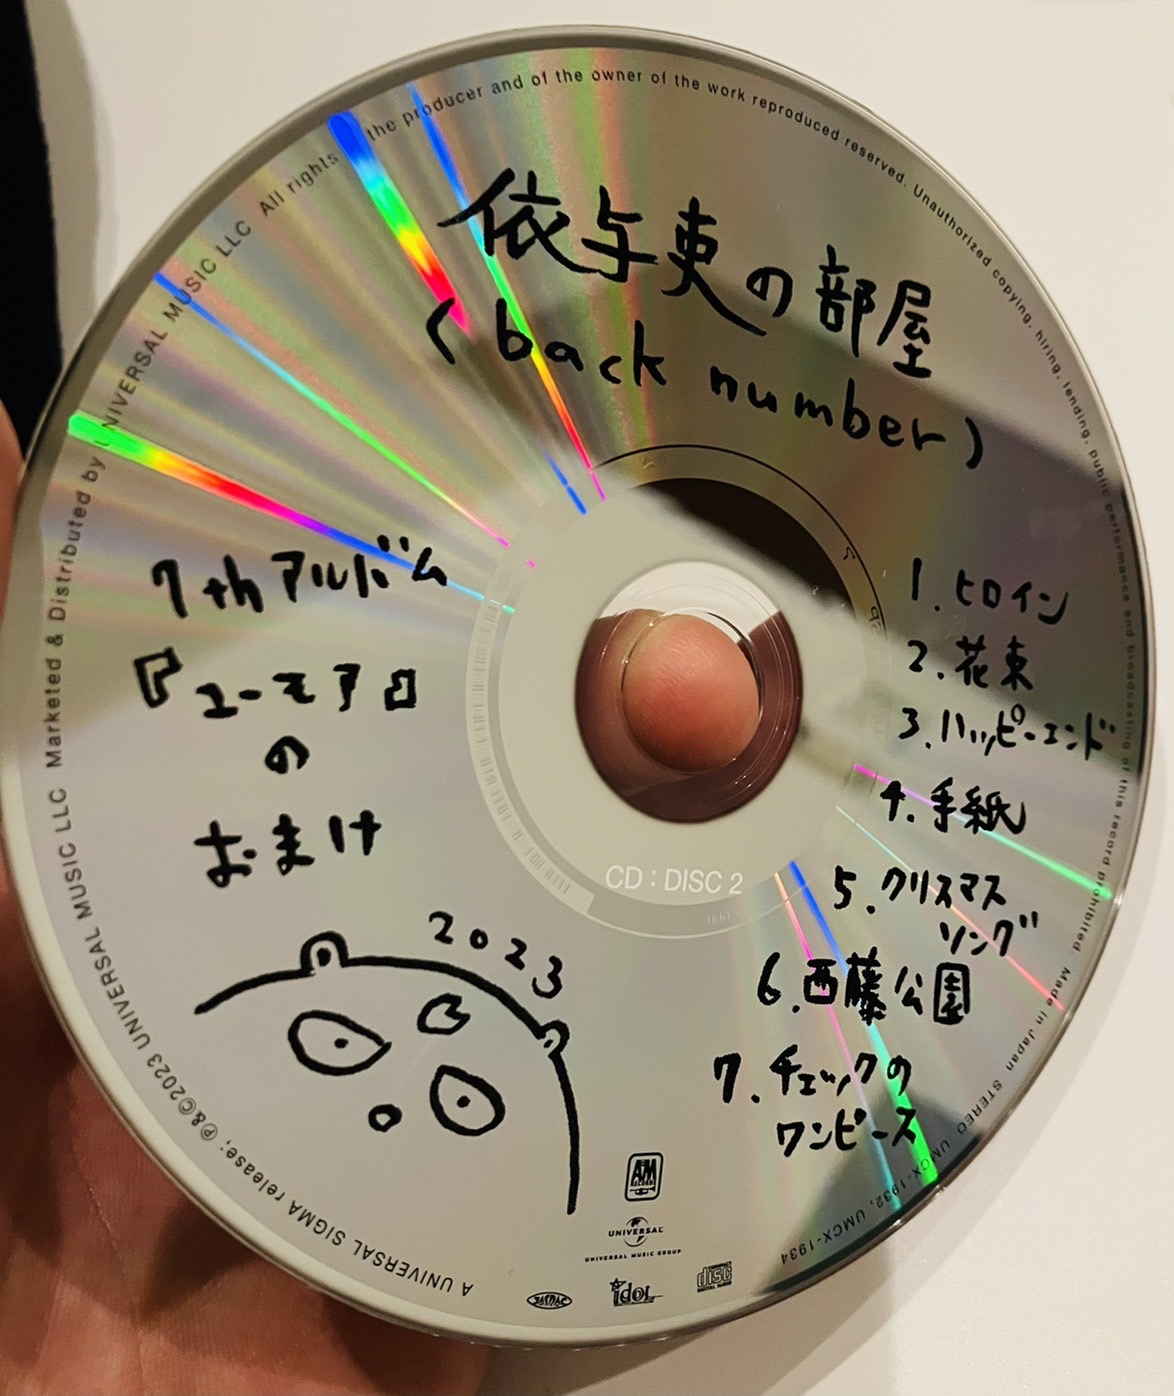 依与吏の部屋
(back number)
7thアルバム
『ユーモア』
の
おまけ
2023
1.ヒロイン
2.花束
3.ハッピーエンド
4.手紙
5.クリスマス
ソング
6.西藤公園
7.チェックの
ワンピース
CD:DISC 2
A&M
RECORDS
UNIVERSAL
UNIVERSAL MUSIC GROUP
JASRAC
idol
disc
DIGITAL AUDIO
A UNIVERSAL SIGMA release; ℗&©2023 UNIVERSAL MUSIC LLC Marketed & Distributed by UNIVERSAL MUSIC LLC All rights the producer and of the owner of the work reproduced reserved. Unauthorized copying, hiring, lending, public performance and broadcasting of this record prohibited. Made in Japan STEREO UMCX-1932, UMCX-1934